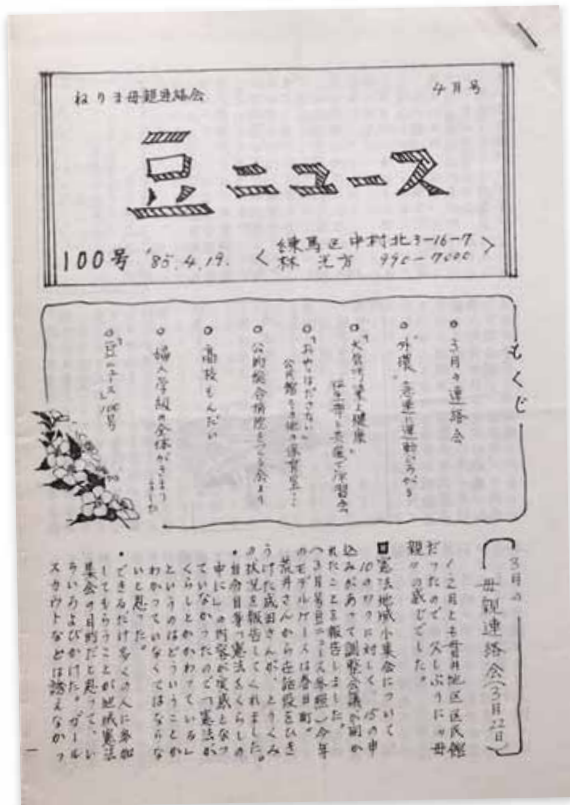 ねりま母親連絡会
4月号
豆ニュース
100号 '85.4.19.
練馬区中村北3-16-7
林 光方 990-7000
もくじ
3月の連絡会
外環
公的総合病院をつくる会より
高校もんだい
婦人学級の全体がきまりました
豆ニュース100号
3月の
母親連絡会(3月22日)
1・2月と貫井地区区民館
だったので 久しぶりに母
親の感じでした。
憲法地域小集会について
10のワクに対して、15の申
込みがあって調整会議が開か
れたことを報告しました。
(3月号豆ニュース参照)今年
のモデルケースは春日町。
荒井さんから世話役をひき
うけた成田さんが、とりくみ
の状況を報告してくれました。
・自分自身「憲法をくらしの
中に」の内容が実感となっ
ていなかったので「憲法が
くらしとかかわっている」
というのはどういうことか
わかっていなくてはならな
いと思った。
・できるだけ多くの人に参加
してもらうことが地域憲法
集会の目的だと思って、い
ろいろよびかけた。ガール
スカウトなどは誘えなかっ